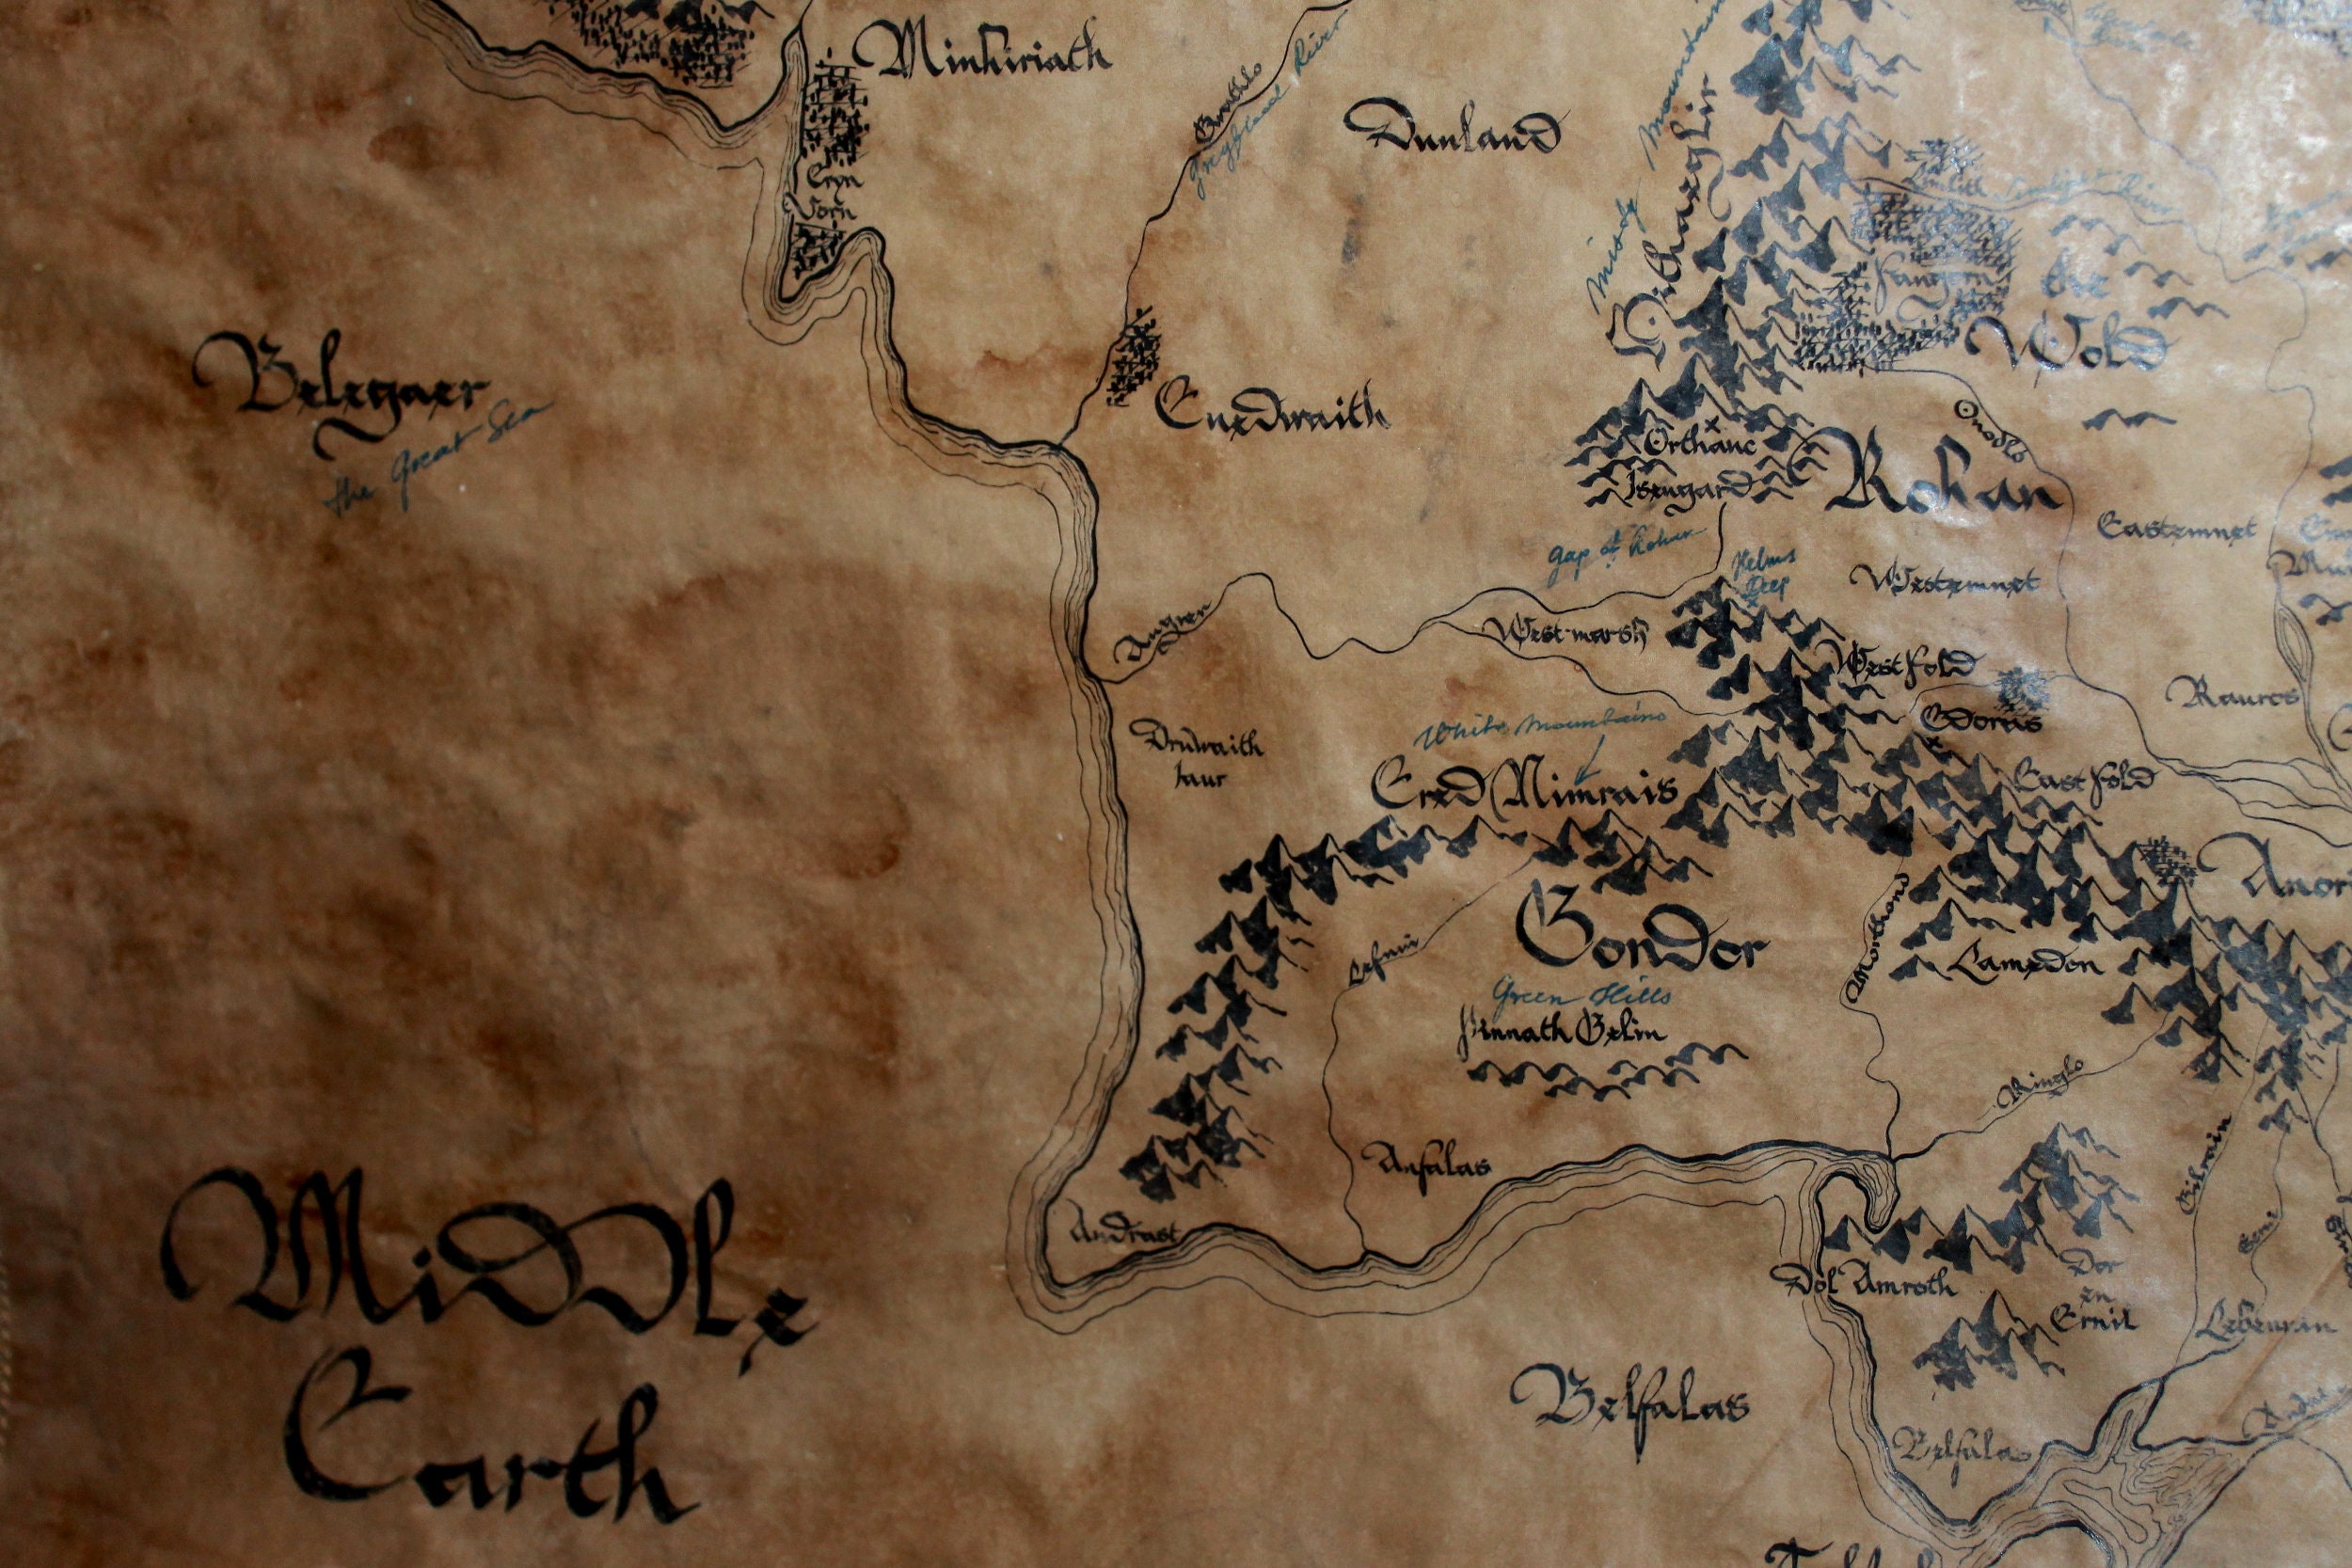 Minhiriath
Gwathlo
Greyflood River
Dunland
Misty Mountains
Hithaeglir
Eryn
Vorn
Limlith
Fangorn
the
Wold
Belegaer
the Great Sea
Enedwaith
Onodlo
Orthanc
Isengard
Rohan
Eastemnet
Gap of Rohan
Helms
Deep
Westemnet
Angren
West-marsh
Westfold
Rauros
Edoras
Drúwaith
Iaur
White Mountains
Ered Nimrais
Eastfold
Anor
Gondor
Morthond
Lefnui
Lamedon
Green Hills
Pinnath Gelin
Ringlo
Anfalas
Andrast
Middle
Earth
Gilrain
Serni
Dol Amroth
Dor
en
Ernil
Lebennin
Belfalas
Belfalas